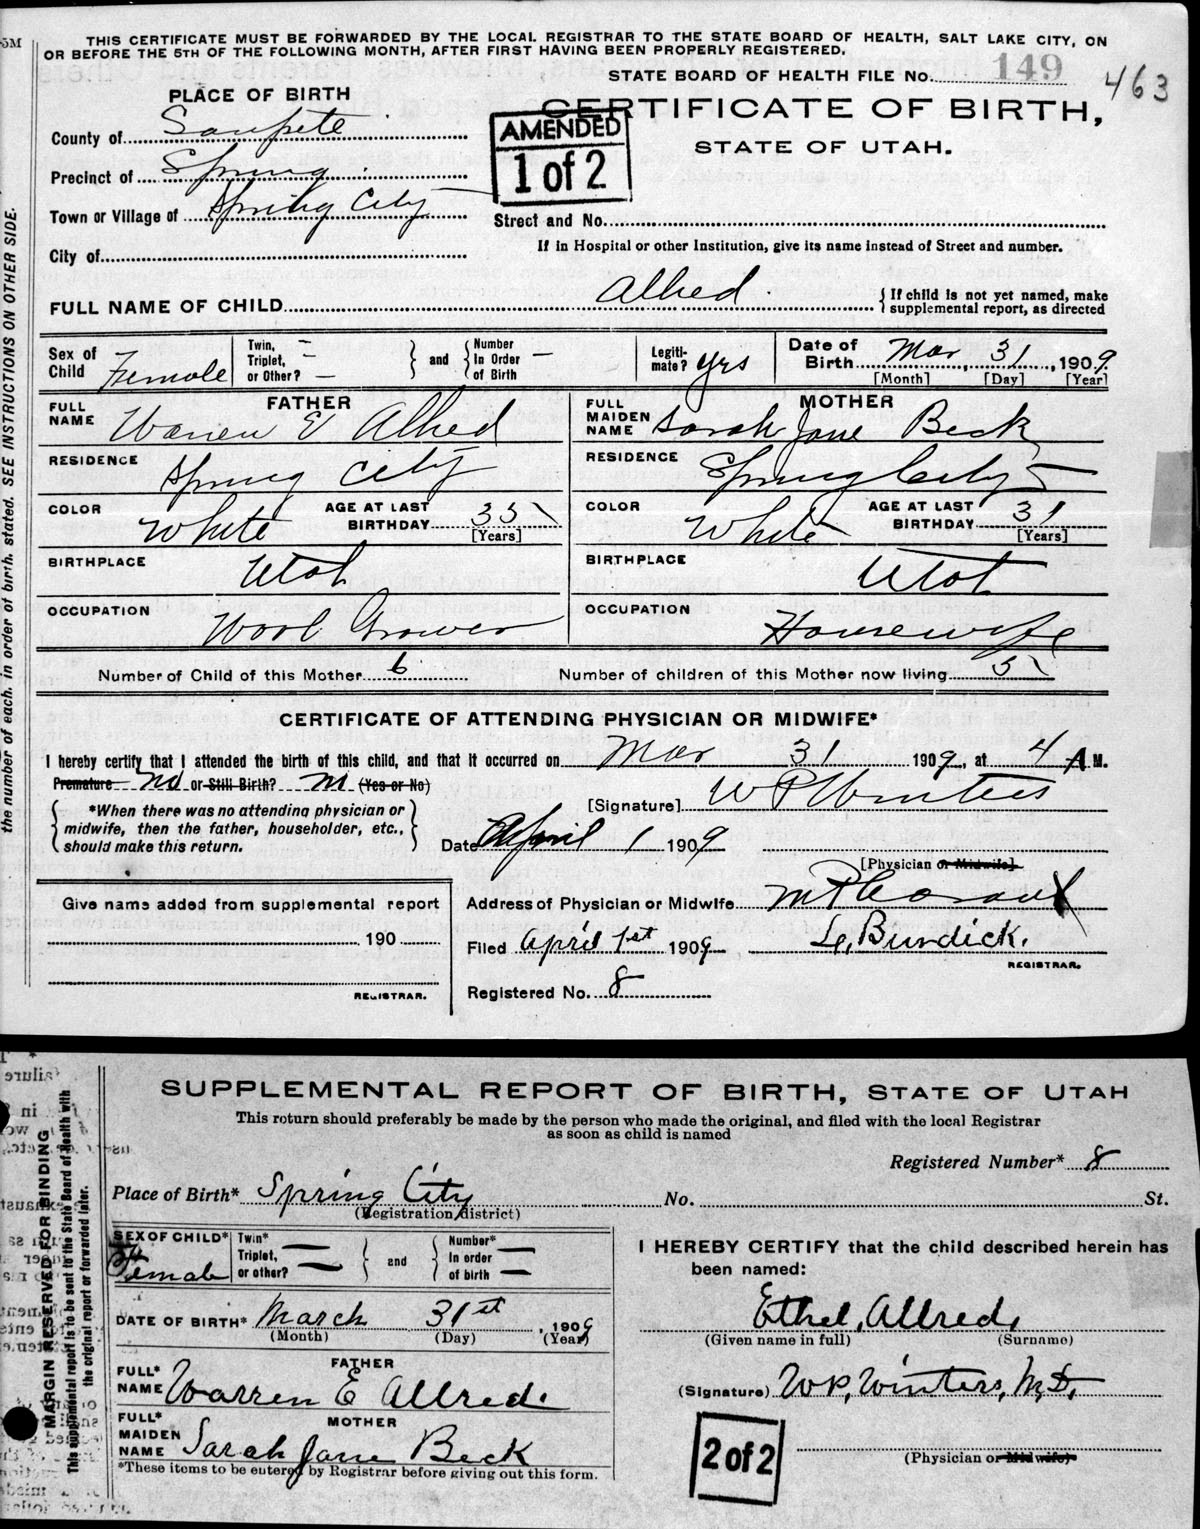 5M
THIS CERTIFICATE MUST BE FORWARDED BY THE LOCAL REGISTRAR TO THE STATE BOARD OF HEALTH, SALT LAKE CITY, ON
OR BEFORE THE 5TH OF THE FOLLOWING MONTH, AFTER FIRST HAVING BEEN PROPERLY REGISTERED.
STATE BOARD OF HEALTH FILE No. 149 463
PLACE OF BIRTH
CERTIFICATE OF BIRTH,
STATE OF UTAH.
AMENDED
1 of 2
County of Sanpete
Precinct of Spring
Town or Village of Spring City
Street and No.
City of
If in Hospital or other Institution, give its name instead of Street and number.
FULL NAME OF CHILD Allred
If child is not yet named, make
supplemental report, as directed
the number of each, in order of birth, stated. SEE INSTRUCTIONS ON OTHER SIDE.
Sex of Child Female
Twin, Triplet, or Other? and Number In Order of Birth
Legitimate? yes
Date of Birth Mar 31, 1909
[Month] [Day] [Year]
FATHER
FULL NAME Warren E Allred
RESIDENCE Spring City
COLOR White AGE AT LAST BIRTHDAY 35
[Years]
BIRTHPLACE Utah
OCCUPATION Wool Grower
MOTHER
FULL MAIDEN NAME Sarah Jane Beck
RESIDENCE Spring City
COLOR White AGE AT LAST BIRTHDAY 31
[Years]
BIRTHPLACE Utah
OCCUPATION Housewife
Number of Child of this Mother 6
Number of children of this Mother now living 5
CERTIFICATE OF ATTENDING PHYSICIAN OR MIDWIFE*
I hereby certify that I attended the birth of this child, and that it occurred on Mar 31 1909, at 4 A M.
Premature No or Still Birth? No (Yes or No)
*When there was no attending physician or
midwife, then the father, householder, etc.,
should make this return.
[Signature] W P Winters
Date April 1 1909
[Physician or Midwife]
Give name added from supplemental report
190
REGISTRAR.
Address of Physician or Midwife Mt Pleasant
Filed April 1st 1909 L. Burdick.
REGISTRAR.
Registered No. 8
SUPPLEMENTAL REPORT OF BIRTH, STATE OF UTAH
This return should preferably be made by the person who made the original, and filed with the local Registrar
as soon as child is named
MARGIN RESERVED FOR BINDING
This supplemental report is to be sent to the State Board of Health with
the original report or forwarded later.
Registered Number* 8
Place of Birth* Spring City No. St.
(Registration district)
SEX OF CHILD* Female
Twin* Triplet, or other? and Number* In order of birth
DATE OF BIRTH* March 31st, 1909
(Month) (Day) (Year)
FATHER
FULL* NAME Warren E Allred.
MOTHER
FULL* MAIDEN NAME Sarah Jane Beck
*These items to be entered by Registrar before giving out this form.
I HEREBY CERTIFY that the child described herein has
been named:
Ethel, Allred,
(Given name in full) (Surname)
(Signature) W.P. Winters, M.D.
(Physician or Midwife)
2 of 2